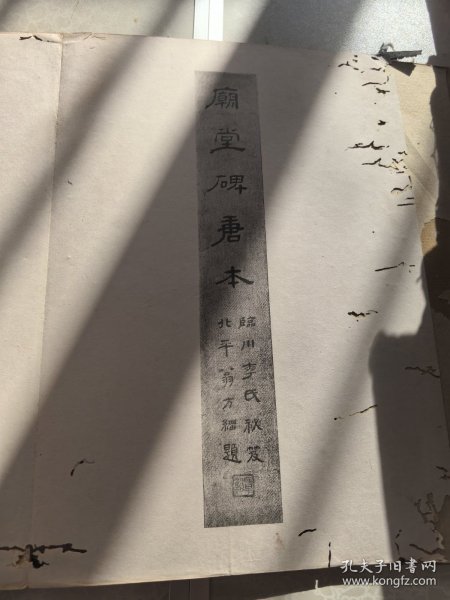 廟堂碑唐本
臨川李氏秘笈
北平翁方綱題
孔夫子旧书网
www.kongfz.com